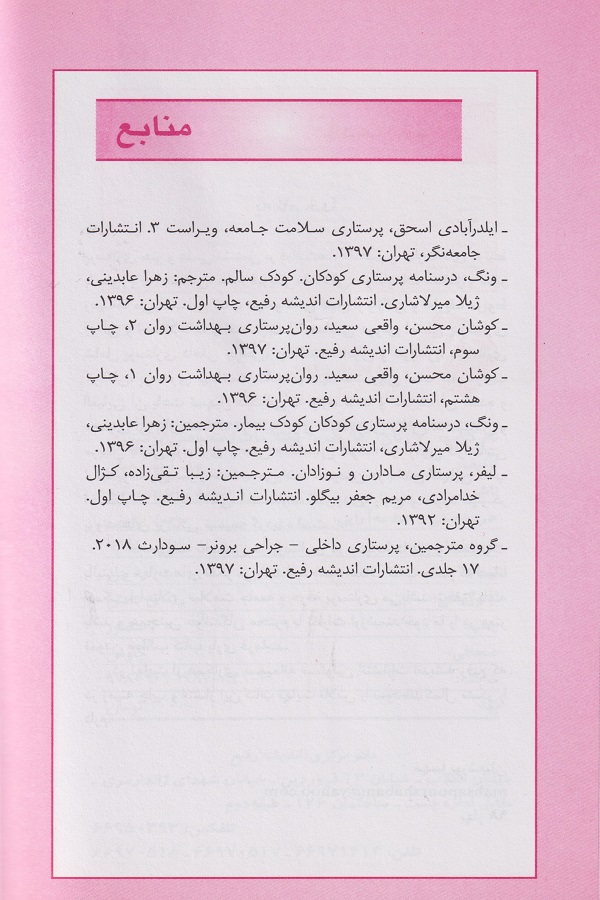 منابع
ـ ایلدرآبادی اسحق، پرستاری سلامت جامعه، ویراست ۳. انتشارات
جامعه‌نگر، تهران: ۱۳۹۷.
ـ ونگ، درسنامه پرستاری کودکان. کودک سالم. مترجم: زهرا عابدینی،
ژیلا میرلاشاری. انتشارات اندیشه رفیع، چاپ اول. تهران: ۱۳۹۶.
ـ کوشان محسن، واقعی سعید، روان‌پرستاری بهداشت روان ۲، چاپ
سوم، انتشارات اندیشه رفیع. تهران: ۱۳۹۷.
ـ کوشان محسن، واقعی سعید. روان‌پرستاری بهداشت روان ۱، چاپ
هشتم، انتشارات اندیشه رفیع. تهران: ۱۳۹۶.
ـ ونگ، درسنامه پرستاری کودکان کودک بیمار. مترجمین: زهرا عابدینی،
ژیلا میرلاشاری، انتشارات اندیشه رفیع. چاپ اول. تهران: ۱۳۹۶.
ـ لیفر، پرستاری مادارن و نوزادان. مترجمین: زیبا تقی‌زاده، کژال
خدامرادی، مریم جعفر بیگلو. انتشارات اندیشه رفیع. چاپ اول.
تهران: ۱۳۹۲.
ـ گروه مترجمین، پرستاری داخلی – جراحی برونر– سودارث ۲۰۱۸.
۱۷ جلدی. انتشارات اندیشه رفیع. تهران: ۱۳۹۷.